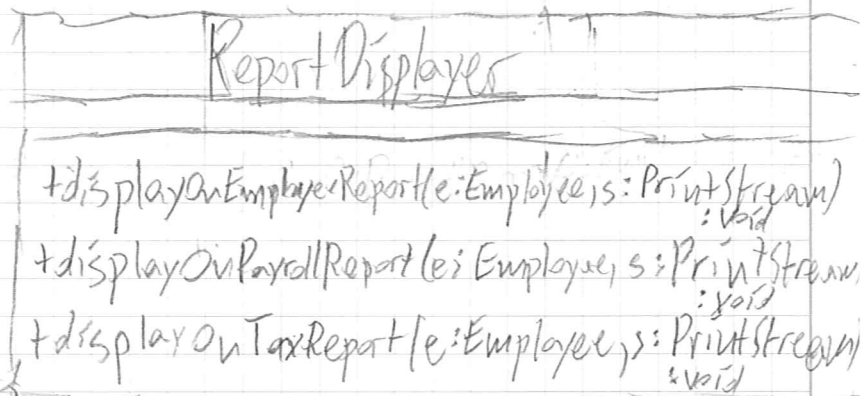 ReportDisplayer
+displayOnEmployeeReport(e:Employee,s:PrintStream)
:void
+displayOnPayrollReport(e:Employee,s:PrintStream
:void
+displayOnTaxReport(e:Employee,s:PrintStream)
:void